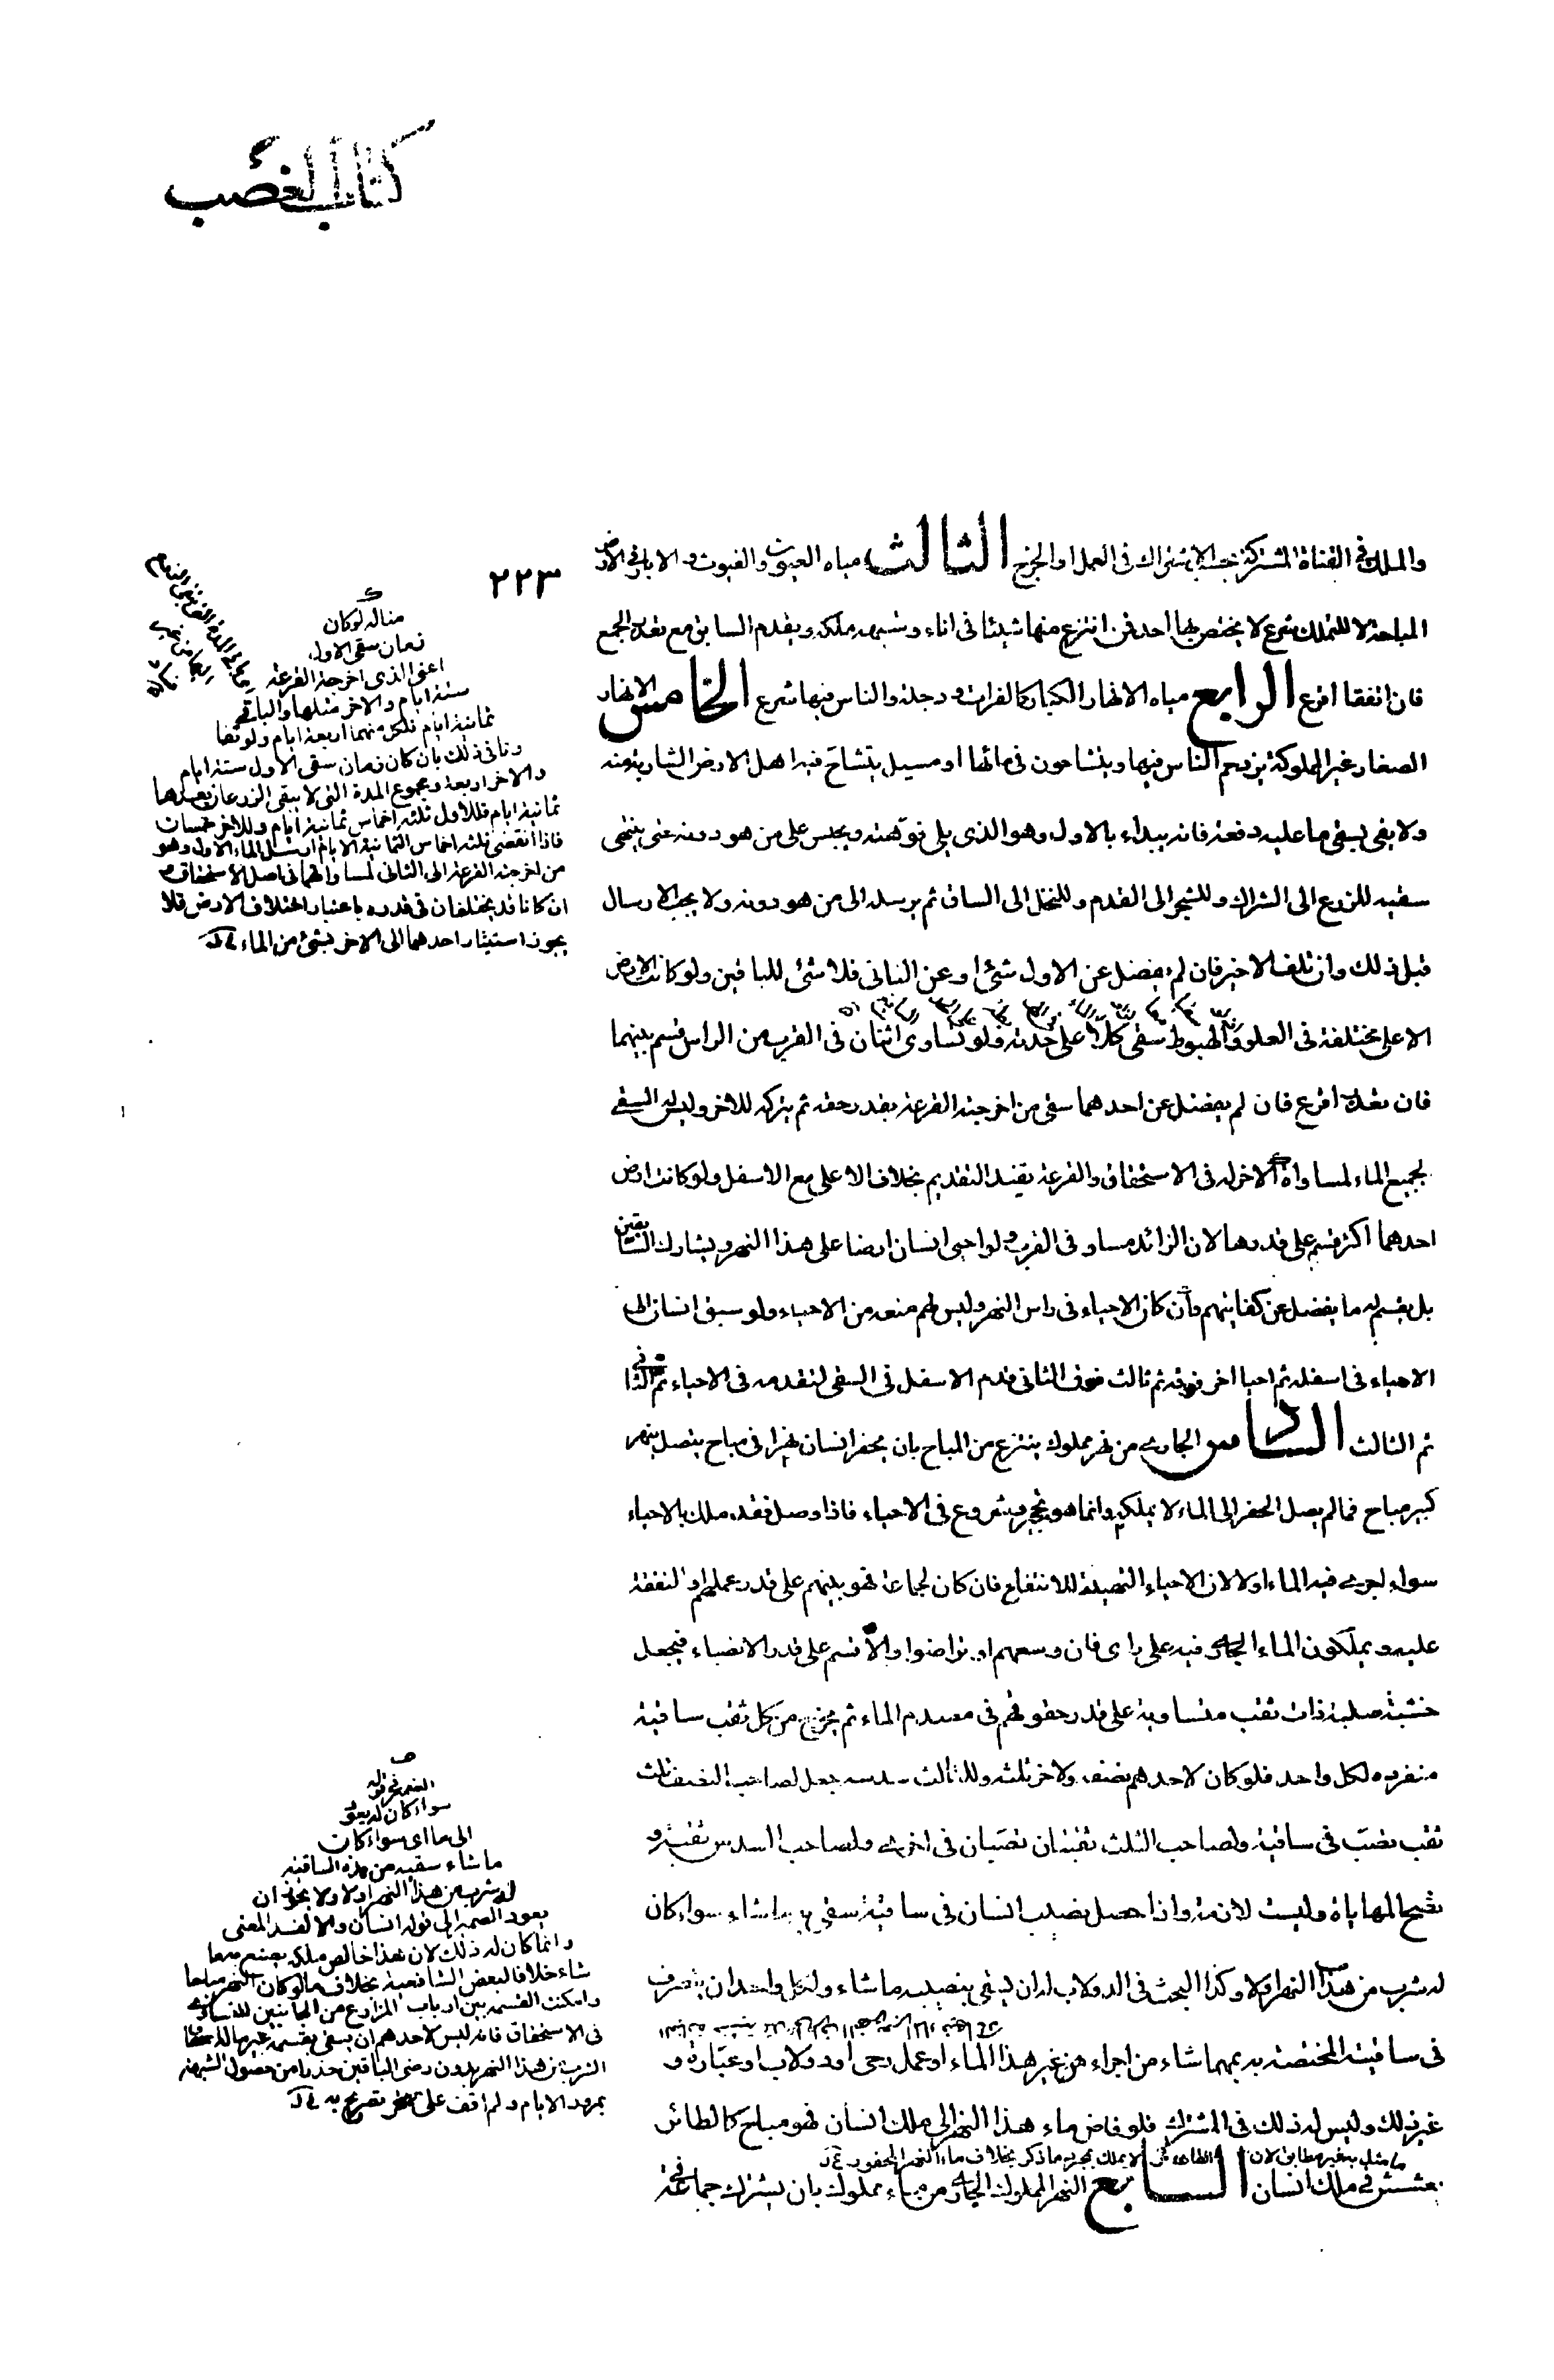 كتاب الغصب
٢٢٣
والملك في القناة المشتركة بحسب الاشتراك في العمل او الخرج الثالث مياه العيون والغيوث والابار في الارض
المباحة لا للتملك شرع لا يختص بها احد فمن انتزع منها شيئا في اناء وشبهه ملكه ويقدم السابق مع تعذر الجمع
فان اتفقا اقرع الرابع مياه الانهار الكبار كالفرات ودجلة والناس فيها شرع الخامس الانهار
الصغار غير المملوكة يزدحم الناس فيها ويتشاحون في مائها او مسيل يتشاح فيه اهل الارض الشاربة منه
ولا يفي يسقي ما عليه دفعة فانه يبداء بالاول وهو الذي يلي فوهته ويحبس على من هو دونه حتى ينتهي
سقيه للزرع الى الشراك وللشجر الى القدم وللنخل الى الساق ثم يرسله الى من هو دونه ولا يجب الارسال
قبل ذلك وان تلف الاخير فان لم يفضل عن الاول شئ او عن الثاني فلا شئ للباقين ولو كانت الارض
الاعلى مختلفة في العلو والهبوط سقى كلا على حدته فلو تساوى اثنان في القرب من الراس قسم بينهما
فان تعذر اقرع فان لم يفضل عن احدهما سقى من اخرجته القرعة بقدر حقه ثم يتركه للاخر وليس له السقي
بجميع الماء لمساواة الاخر له في الاستحقاق والقرعة تفيد التقديم بخلاف الاعلى مع الاسفل ولو كانت ارض
احدهما اكثر قسم على قدرها لان الزائد مساو في القرب ولو احيى انسان ارضا على هذا النهر ويشارك السابقين
بل يقسم له ما يفضل عن كفايتهم وان كان الاحياء في راس النهر وليس لهم منعه من الاحياء ولو سبق انسان الى
الاحياء في اسفله ثم احيا اخر فوقه ثم ثالث فوق الثاني قدم الاسفل في السقي لتقدمه في الاحياء ثم الثاني
ثم الثالث السادس الجاري من نهر مملوك ينتزع من المباح بان يحفر انسان نهرا في مباح يتصل بنهر
كبير مباح فما لم يصل الحفر الى الماء لا يملكه وانما هو تحجير وشروع في الاحياء فاذا وصل فقد ملك بالاحياء
سواء اجرى فيه الماء اولا لان الاحياء التهيئة للانتفاع فان كان لجماعة فهو بينهم على قدر عملهم او النفقة
عليه ويملكون الماء الجاري فيه على راى فان وسعهم او تراضوا والا قسم على قدر الانصباء فيجعل
خشبة صلبة ذات ثقب متساوية على قدر حقوقهم في مصدم الماء ثم يخرج من كل ثقب ساقية
منفردة لكل واحد فلو كان لاحدهم نصفه ولاخر ثلثه وللثالث سدسه جعل لصاحب النصف ثلث
ثقب تصب في ساقية ولصاحب الثلث ثقبتان تصبان في اخرى ولصاحب السدس ثقبة و
تصح المهاياة وليست لازمة واذا حصل نصيب انسان في ساقية سقى به ما شاء سواء كان
له شرب من هذا النهر اولا وكذا البحث في الدولاب له ان يسقي بنصيبه ما شاء ولكل واحد ان يتصرف
في ساقيته المختصة به بمهما شاء من اجراء غير هذا الماء او عمل رحى او دولاب او عبارة و
غير ذلك وليس له ذلك في المشترك فلو فاض ماء هذا النهر الى ملك انسان فهو مباح كالطائر
يعشش في ملك انسان السابع النهر المملوك الجاري من ماء مملوك بان يشترك جماعة في
مثاله لو كان
زمان سقى الاول
اعني الذي اخرجته القرعة
ستة ايام والاخر مثلها والباقي
ثمانية ايام فلكل منهما اربعة ايام ولو تفا
وتا في ذلك بان كان زمان سقى الاول ستة ايام
والاخر اربعة ومجموع المدة التي لا يبقى الزرعان بعدها
ثمانية ايام فللاول ثلثة اخماس ثمانية ايام وللاخر خمسان
فاذا انقضى ثلثة اخماس الثمانية الايام ارسل الماء الاول وهو
من اخرجته القرعة الى الثاني لمساواتهما في اصل الاستحقاق و
ان كانا قد يختلفان في قدره باعتبار اختلاف الارض فلا
يجوز استيثار احدهما الى الاخر بشئ من الماء
الضمير في قوله
سواء كان له يعود
الى ما اى سواء كان
ما شاء سقيه من هذه الساقية
له شرب من هذا النهر اولا ولا يجوز ان
يعود الضمير الى قوله انسان والا لفسد المعنى
وانما كان له ذلك لان هذا خالص ملكه يصنع به ما
شاء خلافا لبعض الشافعية بخلاف ما لو كان النهر مباحا
وامكنت القسمة بين ارباب المزارع من الجانبين للتساوى
في الاستحقاق فانه ليس لاحدهم ان يسقي بقسمه غير ماله استحقاق
الشرب من هذا النهر بدون رضى الباقين حذرا من حصول الشبهة
بمرور الايام ولم اقف على تصريح به